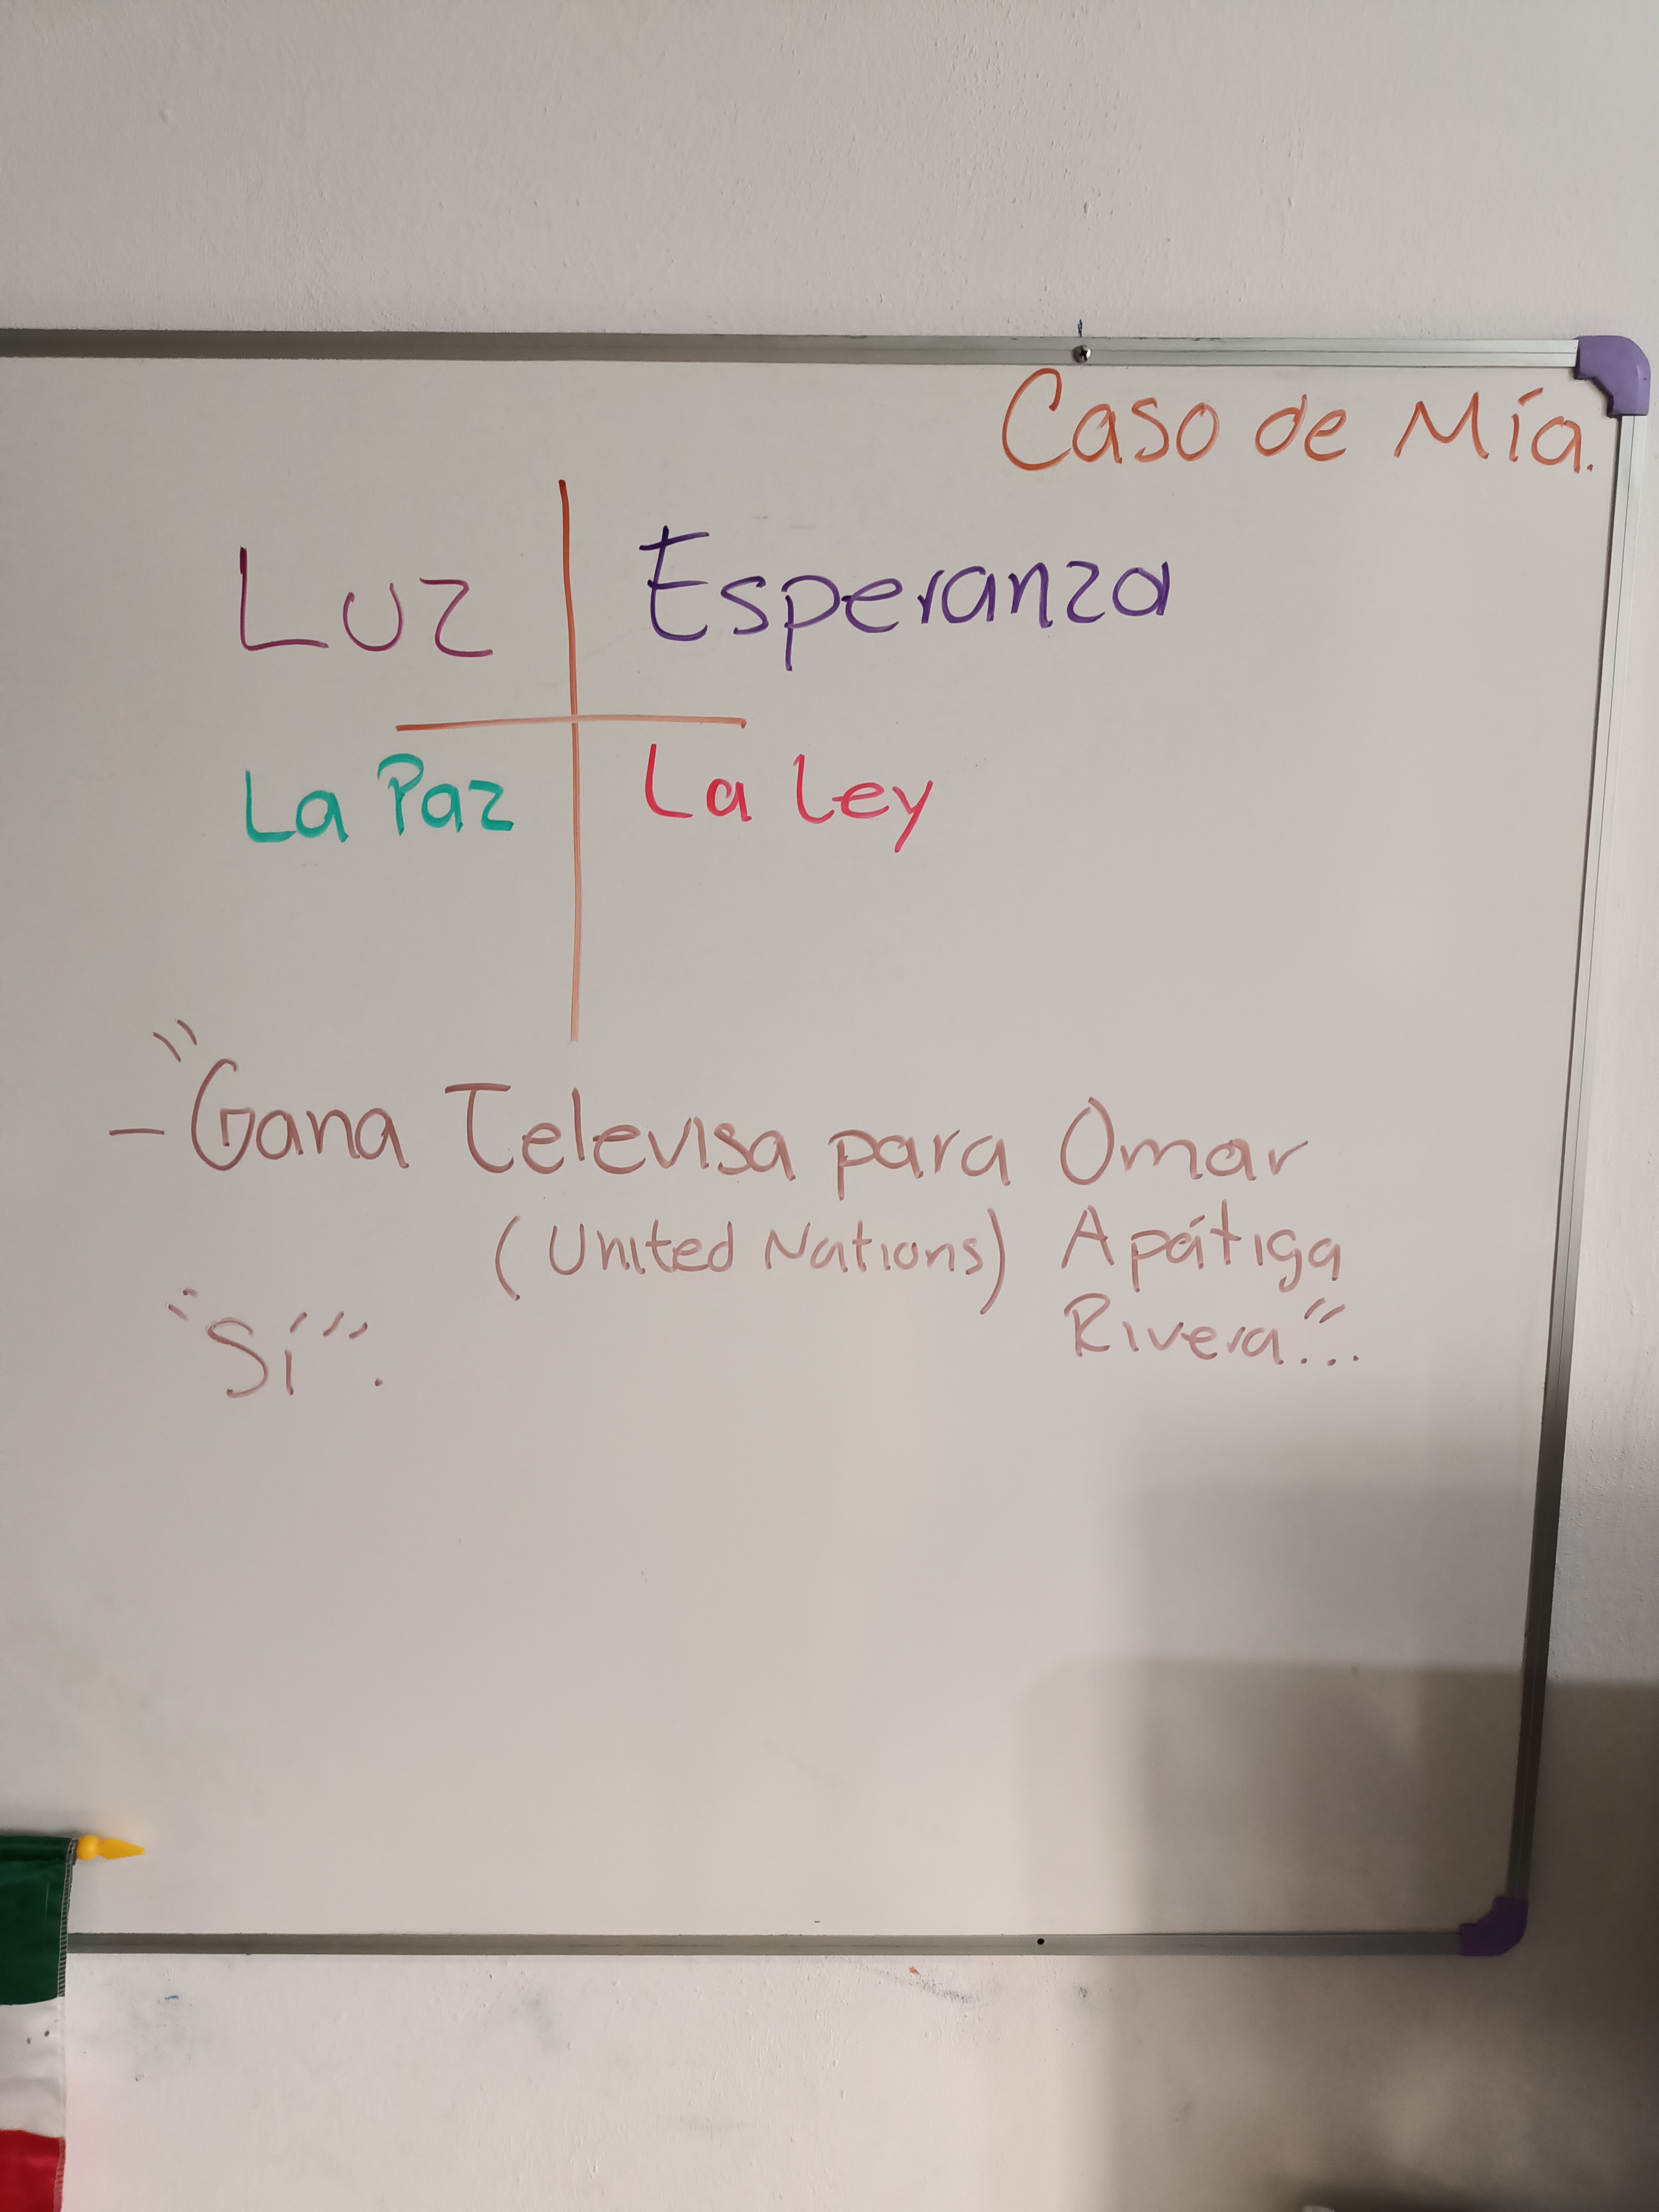 Caso de Mía.
Luz Esperanza
La Paz La Ley
- "Gana Televisa para Omar
(United Nations) Apátiga
Rivera"...
"Sí".